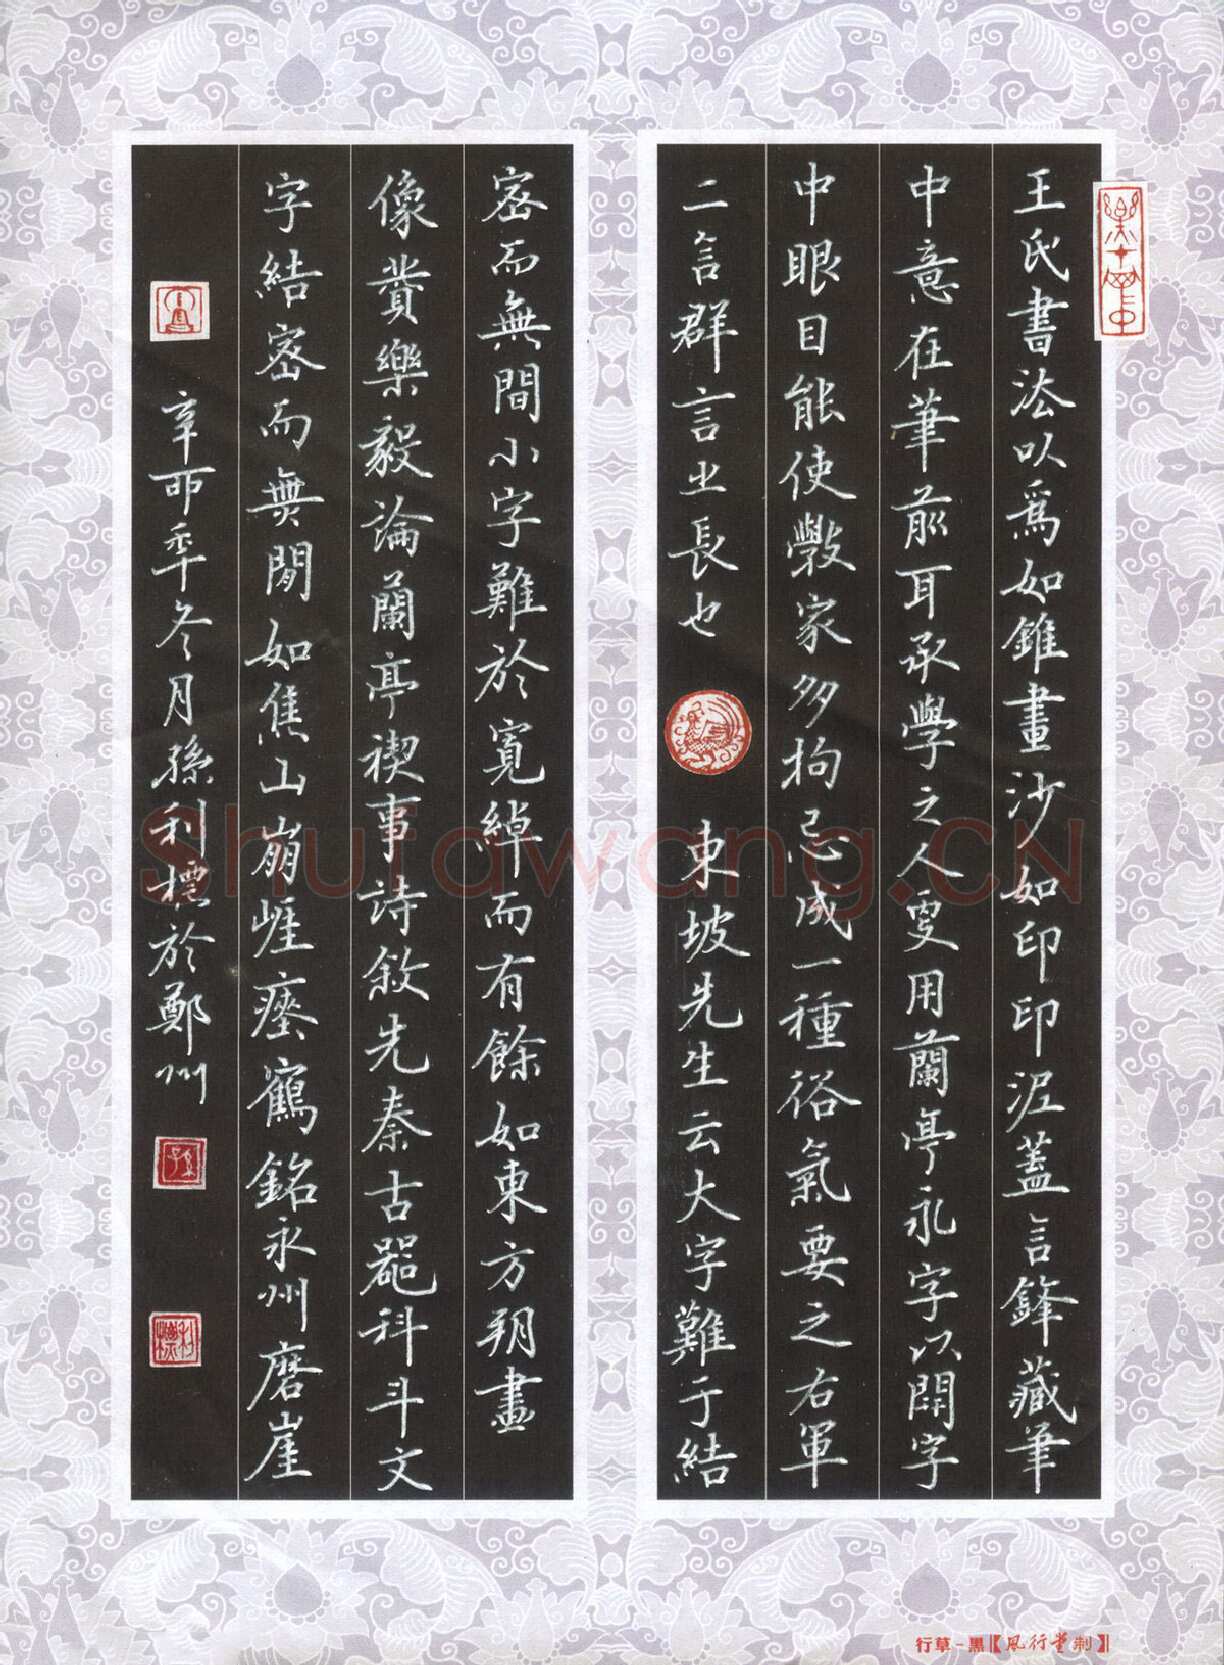 王氏書法以爲如錐畫沙如印印泥蓋言鋒藏筆
中意在筆前耳承學之人更用蘭亭永字以開字
中眼目能使學家多拘忌成一種俗氣要之右軍
二言群言之長也 東坡先生云大字難于結
密而無間小字難於寬綽而有餘如東方朔畫
像贊樂毅論蘭亭禊事詩敘先秦古器科斗文
字結密而無間如焦山崩崖瘞鶴銘永州磨崖
辛卯年冬月孫利標於鄭州
Shufawang.CN
行草-黑【風行堂制】